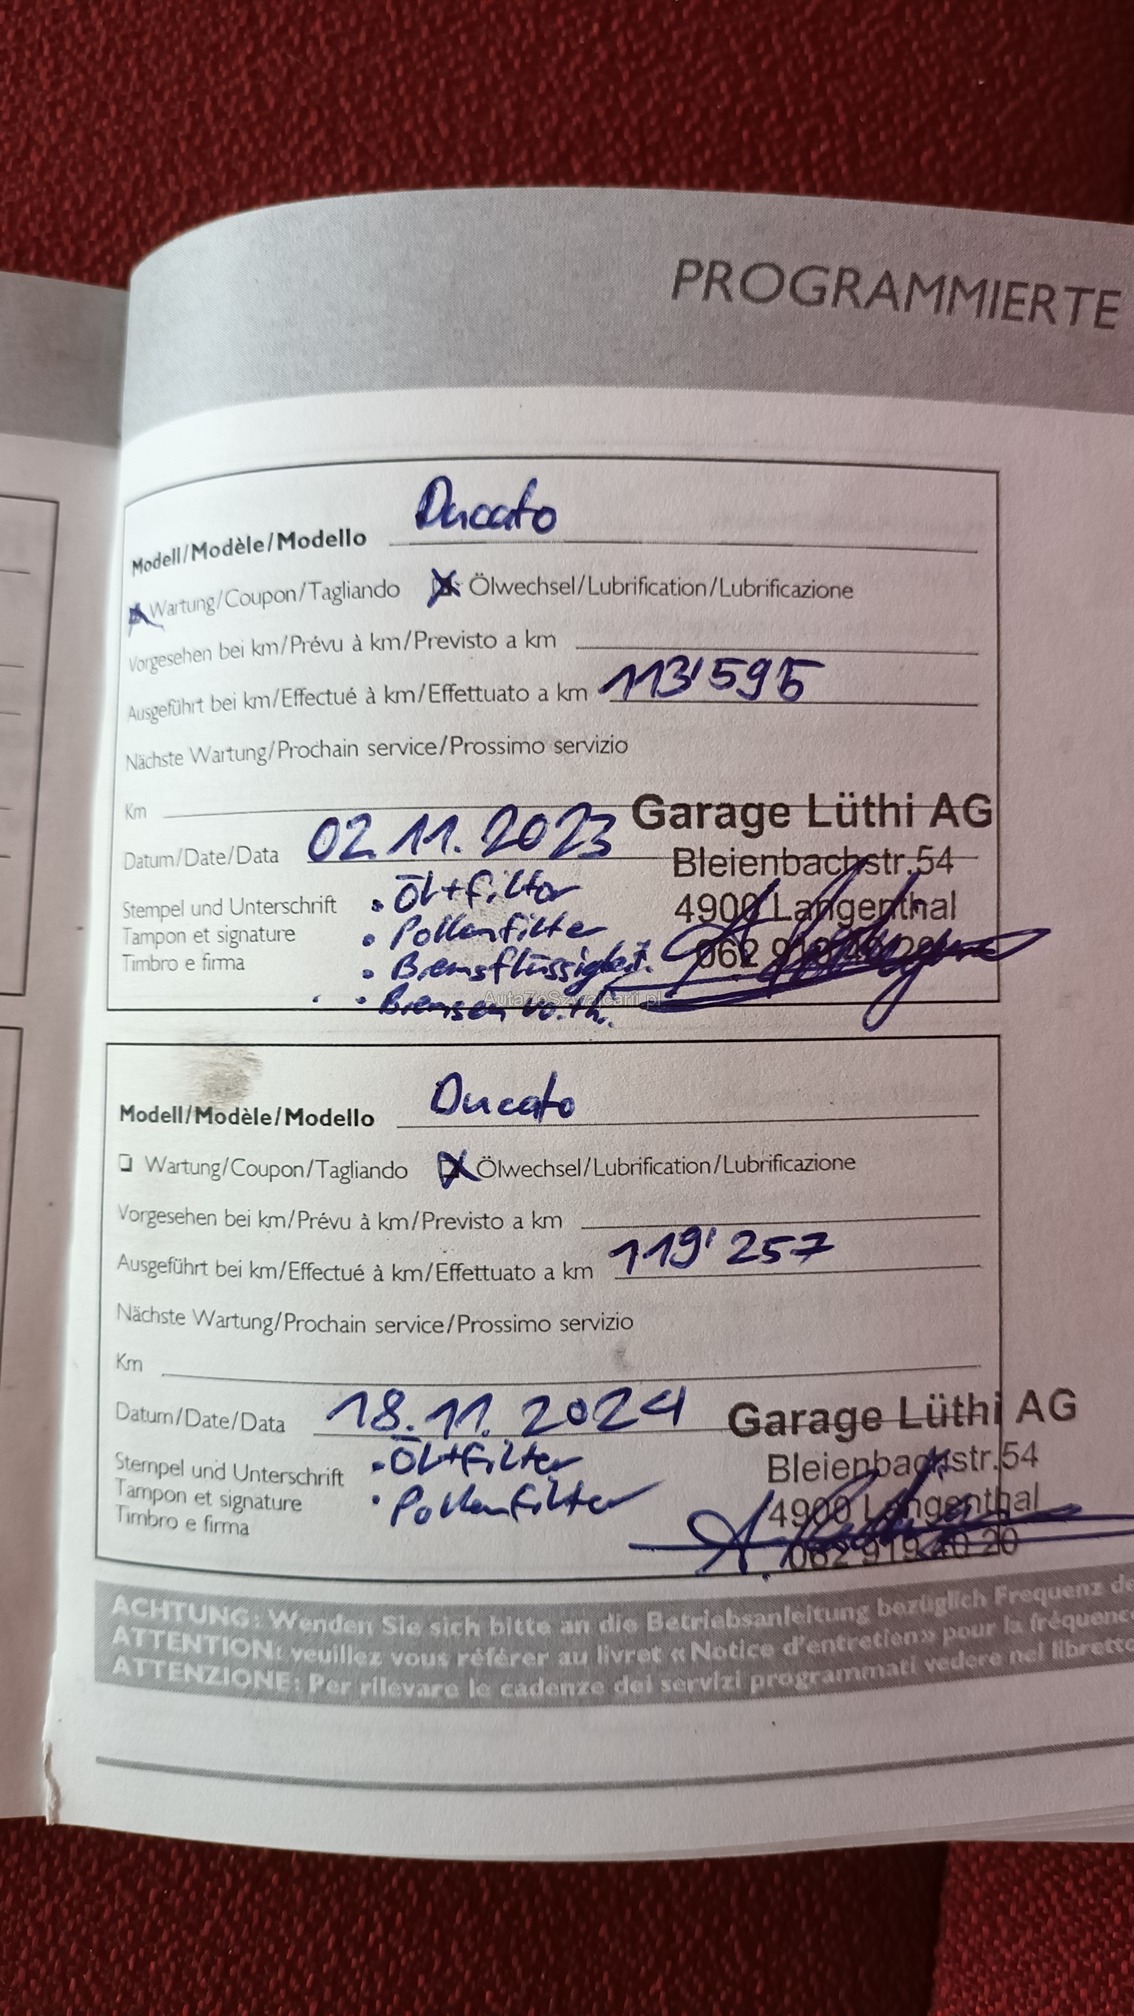 PROGRAMMIERTE
Modell/Modèle/Modello Ducato
Wartung/Coupon/Tagliando Ölwechsel/Lubrification/Lubrificazione
Vorgesehen bei km/Prévu à km/Previsto a km
Ausgeführt bei km/Effectué à km/Effettuato a km 113'595
Nächste Wartung/Prochain service/Prossimo servizio
Km
Garage Lüthi AG
Datum/Date/Data 02.11.2023
Bleienbachstr.54
Stempel und Unterschrift
• Öl+filter
4900 Langenthal
Tampon et signature
• Pollenfilter
062 919
Timbro e firma
• Bremsflüssigkeit.
• Bremsen vo.+h.
AutaZeSzwajcarii.pl
Modell/Modèle/Modello Ducato
Wartung/Coupon/Tagliando Ölwechsel/Lubrification/Lubrificazione
Vorgesehen bei km/Prévu à km/Previsto a km
Ausgeführt bei km/Effectué à km/Effettuato a km 119'257
Nächste Wartung/Prochain service/Prossimo servizio
Km
Datum/Date/Data 18.11.2024 Garage Lüthi AG
Stempel und Unterschrift • Öl+filter Bleienbachstr.54
Tampon et signature • Pollenfilter 4900 Langenthal
Timbro e firma 062 919 40 20
ACHTUNG: Wenden Sie sich bitte an die Betriebsanleitung bezüglich Frequenz de
ATTENTION: veuillez vous référer au livret « Notice d'entretien» pour la fréquenc
ATTENZIONE: Per rilevare le cadenze dei servizi programmati vedere nel libretto